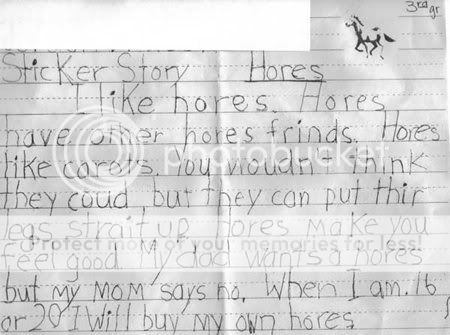 3rd gr
Sticker Story Hores
I like hores. Hores
have other hores frinds. Hores
like carots. You woudn't think
they coud, but they can put thir
legs strait up. Hores make you
feel good. My dad wants a hores
but my mom says no. When I am 16
or 20 I will buy my own hores
photobucket
Protect more of your memories for less!